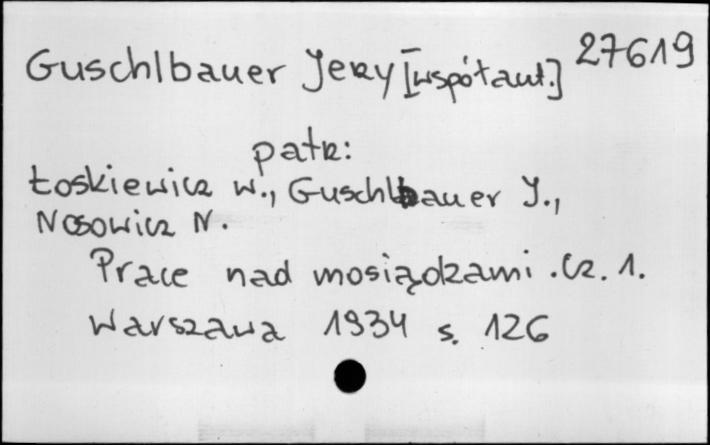 27619
Guschlbauer Jerzy [współaut.]
patrz:
Łoskiewicz W., Guschlbauer J.,
Nosowicz N.
Prace nad mosiądzami. Cz. 1.
Warszawa 1934 s. 126